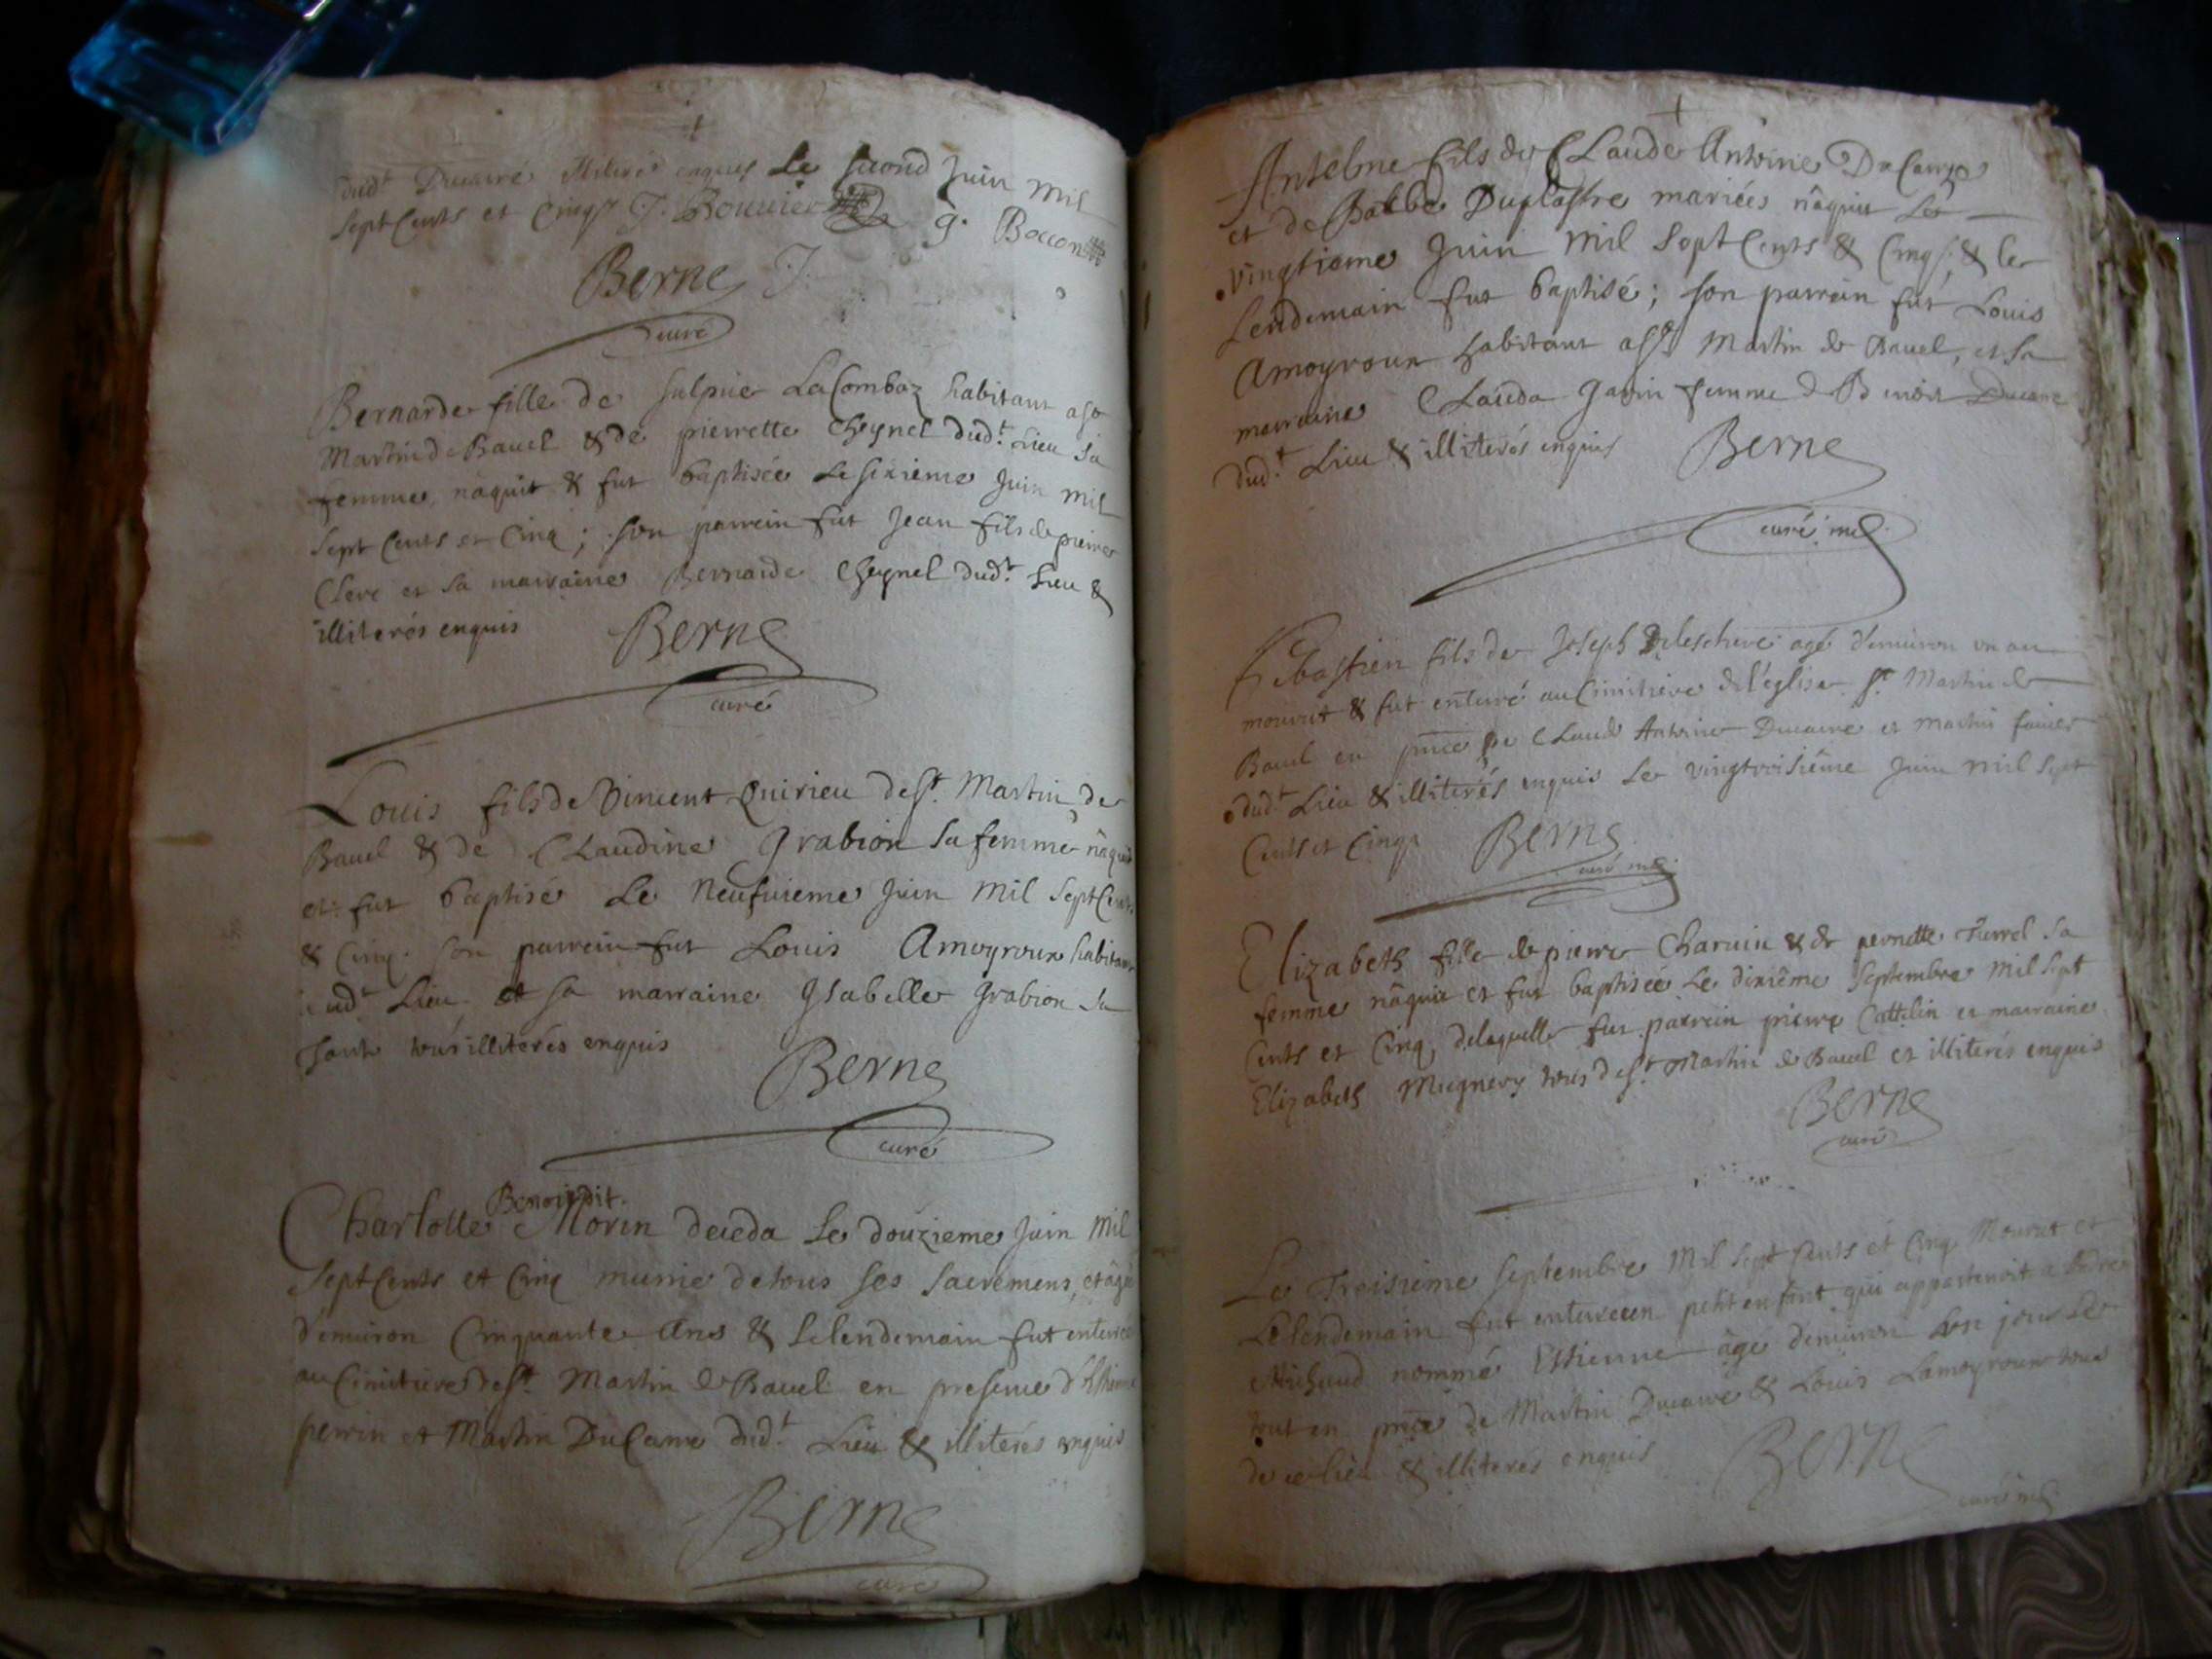 dud.t Ducarre illiteré enquis Le second Juin mil
sept Cents et Cinq J. Bouvier g. Boccon
Berne J.
curé
Bernarde fille de sulpice LaCombaz habitant a st
Martin de Bavel & de pierrette Cheynel dud.t Lieu sa
femme nâquit & fut baptisée Le sixieme Juin mil
sept Cents et Cinq ; son parrein fut Jean fils de pierre
Clerc et sa marraine Bernarde Cheynel dud.t Lieu &
illiterés enquis Berne
curé
Louis fils de Vincent Quirieu de st. Martin de
Bavel & de Claudine Grabion sa femme nâquit
et fut baptisé Le Neufvieme Juin Mil Sept Cents
& Cinq. son parrein fut Louis Amoyroux habitant
dud.t Lieu et sa marraine Isabelle Grabion sa
tante tous illiterés enquis
Berne
curé
Benoit dit.
Charlotte Morin deceda Le douzieme Juin Mil
Sept Cents et Cinq munie de tous ses sacremens, et âgée
d'environ Cinquante Ans & Lelendemain fut enterrée
au Cimitiere de st. Martin de Bavel en presence d'Estienne
perrin et Martin DuCarre dud.t Lieu & illiterés enquis
Berne
curé
Antelme fils de Claude Antoine DuCarre
et de Balbe Duplastre mariées nâquit Le
vingtieme Juin Mil Sept Cents & Cinq ; & le
Lendemain fut baptisé ; son parrein fut Louis
Amoyroux habitant a st. Martin de Bavel, et sa
marraine Clauda Gavin femme de Benoit Ducarre
dud.t Lieu & illiterés enquis Berne
curé md.
Sebastien fils de Joseph Deleschere agé d'environ un an
mourut & fut enterré au Cimitiere de l'église st. Martin de
Bavel en pnce de Claude Antoine Ducarre et Martin
dud.t Lieu & illiterés enquis Le vingtroisiême Juin mil sept
Cents et Cinq Berne
curé md.
Elizabeth fille de pierre Charvin & de pernette Turrel sa
femme nâquit et fut baptisée Le dixiême Septembre Mil Sept
Cents et Cinq, delaquelle fut parrein pierre Cattelin et marraine
Elizabeth Mugnery tous de st. Martin de Bavel et illiterés enquis
Berne
curé
Le Troisieme septembre Mil Sept Cents et Cinq Mourut et
Lelendemain fut enterré un petit enfant qui appartenoit a
Michaud nommé Estienne âgé d'environ un jour Le
tout en pnce de Martin Ducarre & Louis Lamoyroux tous
de ce lieu & illiteres enquis Berne
curé md.